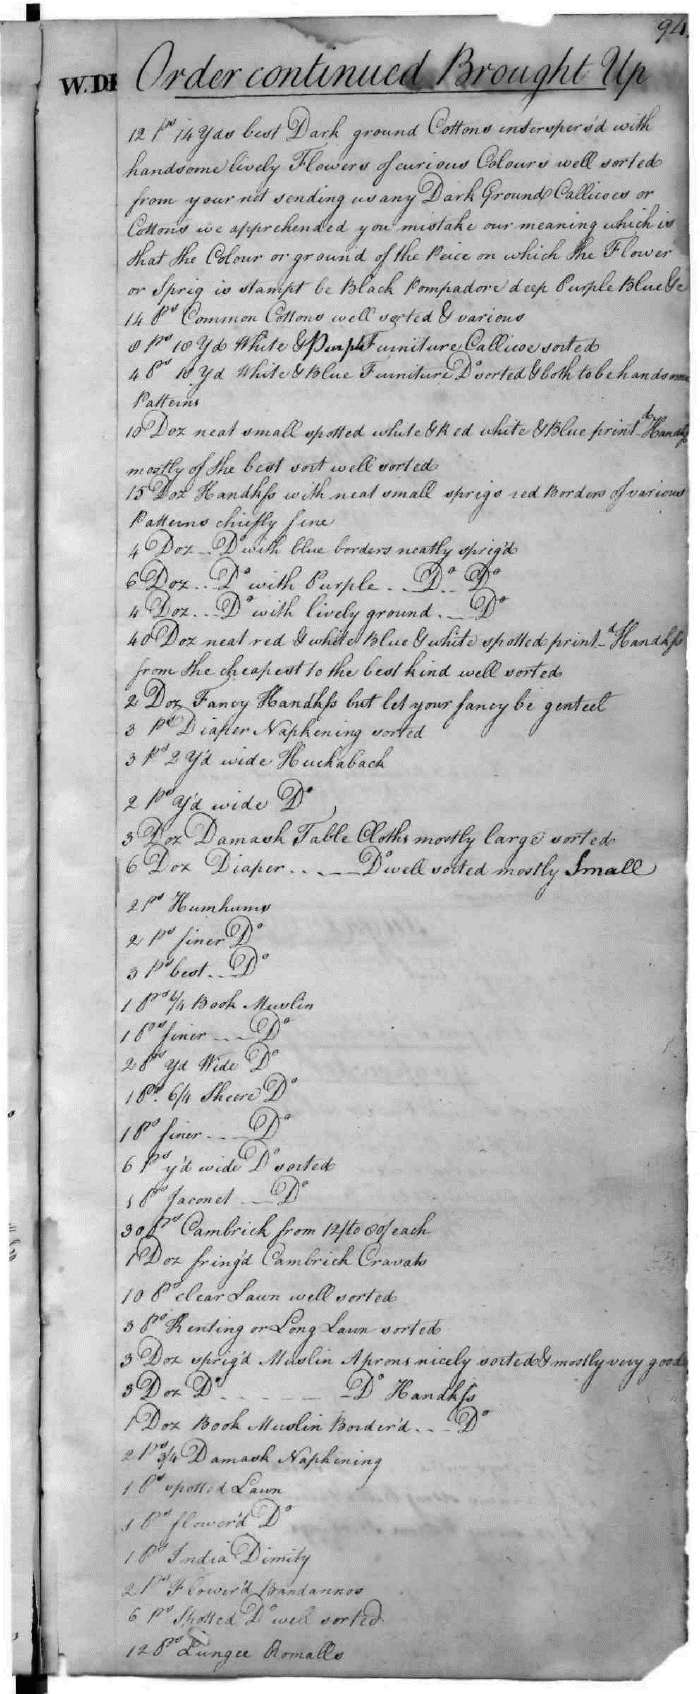 94.
W.DI Order continued Brought Up
12 Ps 14 Yds best Dark ground Cottons interspers'd with
handsome lively Flowers of curious Colours well sorted
from your not sending us any Dark Ground Callicoes or
Cottons we apprehended you mistake our meaning which is
that the Colour or ground of the Peice on which the Flower
or Sprig is stampt be Black Pompadore deep Purple Blue &c
14 Ps Common Cottons well sorted & various
8 Ps 18 Yd White & Purple Furniture Callicoe sorted
4 Ps 18 Yd White & Blue Furniture Do sorted & both to be handsome
Patterns
10 Doz neat small spotted white & Red white & Blue printd Handkfs
mostly of the best sort well sorted
15 Doz Handkfs with neat small sprigs red Borders of various
Patterns chiefly fine
4 Doz .. Do with blue borders neatly sprig'd
6 Doz .. Do with Purple .. Do .. Do
4 Doz .. Do with lively ground .. Do
40 Doz neat red & white Blue & white spotted printd Handkfs
from the cheapest to the best kind well sorted
2 Doz Fancy Handkfs but let your fancy be genteel
3 Ps Diaper Napkening sorted
3 Ps 2 Y'd wide Huckaback
2 Ps Y'd wide Do
3 Doz Damask Table Cloths mostly large sorted
6 Doz Diaper .. .. Do well sorted mostly Small
2 Ps Humhums
2 Ps finer Do
3 Ps best .. Do
1 Ps 6/4 Book Muslin
1 Ps finer .. Do
2 Ps Yd Wide Do
1 Ps. 6/4 Sheere Do
1 Ps finer .. Do
6 Ps y'd wide Do sorted
1 Ps Jaconet .. Do
30 Ps Cambrick from 12/ to of each
1 Doz fring'd Cambrick Cravats
10 Ps clear Lawn well sorted
3 Ps Kenting or Long Lawn sorted
3 Doz sprig'd Muslin Aprons nicely sorted & mostly very good
3 Doz Do . . . . . Do Handkfs
1 Doz Book Muslin Border'd .. Do
2 Ps 3/4 Damask Napkening
1 Ps spotted Lawn
1 Ps flower'd Do
1 Ps India Dimity
2 Ps Flower'd Bandannos
6 Ps Spotted Do well sorted
12 Ps Lungee Romalls